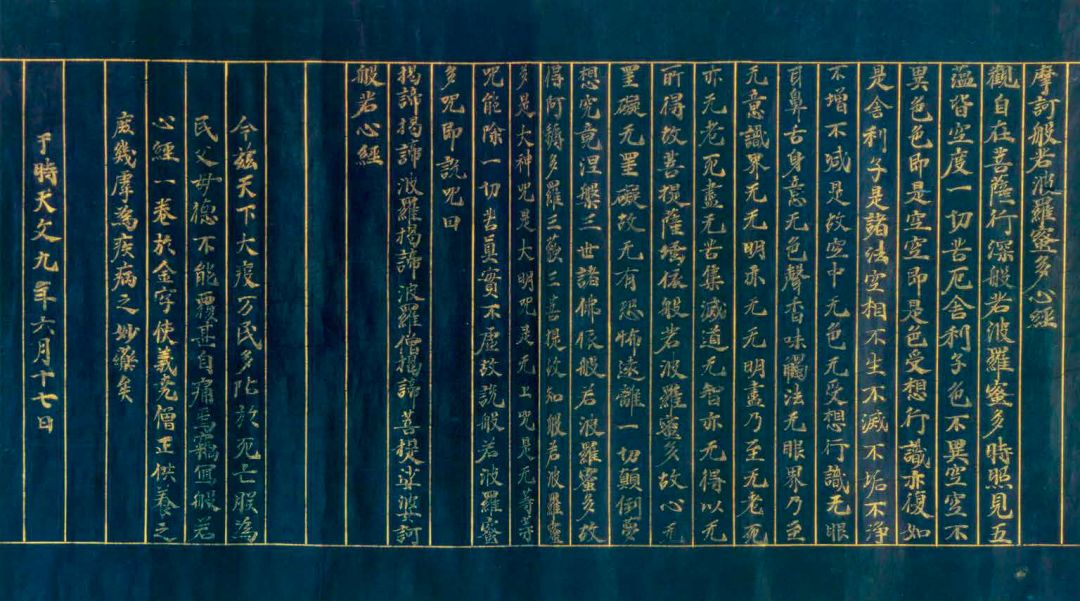 摩訶般若波羅蜜多心經
觀自在菩薩行深般若波羅蜜多時照見五
蘊皆空度一切苦厄舍利子色不異空空不
異色色即是空空即是色受想行識亦復如
是舍利子是諸法空相不生不滅不垢不淨
不增不減是故空中无色无受想行識无眼
耳鼻舌身意无色聲香味觸法无眼界乃至
无意識界无无明亦无无明盡乃至无老死
亦无老死盡无苦集滅道无智亦无得以无
所得故菩提薩埵依般若波羅蜜多故心无
罣礙无罣礙故无有恐怖遠離一切顛倒夢
想究竟涅槃三世諸佛依般若波羅蜜多故
得阿耨多羅三藐三菩提故知般若波羅蜜
多是大神咒是大明咒是无上咒是无等等
咒能除一切苦真實不虛故說般若波羅蜜
多咒即說咒曰
揭諦揭諦 波羅揭諦 波羅僧揭諦 菩提娑婆訶
般若心經
今茲天下大疫万民多阽於死亡朕為
民父母德不能覆甚自痛焉竊寫般若
心經一卷於金字使義堯僧正供養之
庶幾虖為疾病之妙藥矣
于時天文九年六月十七日